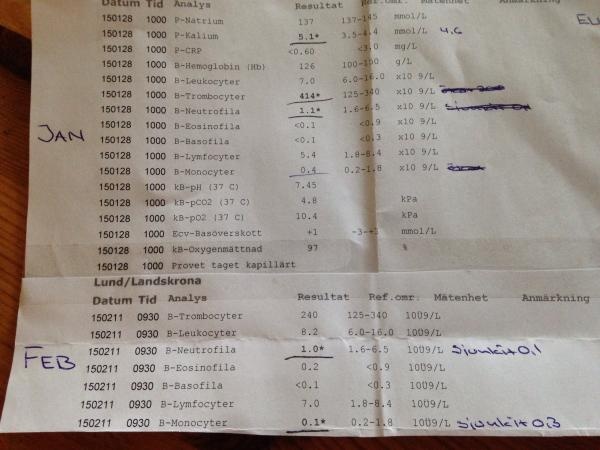 Datum Tid Analys Resultat Ref.omr. Mätenhet Anmärkning
150128 1000 P-Natrium 137 137-145 mmol/L
150128 1000 P-Kalium 5.1* 3.5-4.4 mmol/L 4,6
150128 1000 P-CRP <0.60 <3.0 mg/L
150128 1000 B-Hemoglobin (Hb) 126 g/L
150128 1000 B-Leukocyter 7.0 6.0-16.0 x10 9/L
150128 1000 B-Trombocyter 414* 125-340 x10 9/L
JAN 150128 1000 B-Neutrofila 1.1* 1.6-6.5 x10 9/L
150128 1000 B-Eosinofila <0.1 <0.9 x10 9/L
150128 1000 B-Basofila <0.1 <0.3 x10 9/L
150128 1000 B-Lymfocyter 5.4 1.8-8.4 x10 9/L
150128 1000 B-Monocyter 0.4 0.2-1.8 x10 9/L
150128 1000 kB-pH (37 C) 7.45
150128 1000 kB-pCO2 (37 C) 4.8 kPa
150128 1000 kB-pO2 (37 C) 10.4 kPa
150128 1000 Ecv-Basöverskott +1 -3-+3 mmol/L
150128 1000 kB-Oxygenmättnad 97 %
150128 1000 Provet taget kapillärt
Lund/Landskrona
Datum Tid Analys Resultat Ref.omr. Mätenhet Anmärkning
150211 0930 B-Trombocyter 240 125-340 10Ü9/L
150211 0930 B-Leukocyter 8.2 6.0-16.0 10Ü9/L
FEB 150211 0930 B-Neutrofila 1.0* 1.6-6.5 10Ü9/L Sjunkit 0,1
150211 0930 B-Eosinofila 0.2 <0.9 10Ü9/L
150211 0930 B-Basofila <0.1 <0.3 10Ü9/L
150211 0930 B-Lymfocyter 7.0 1.8-8.4 10Ü9/L
150211 0930 B-Monocyter 0.1* 0.2-1.8 10Ü9/L sjunkit 0,3